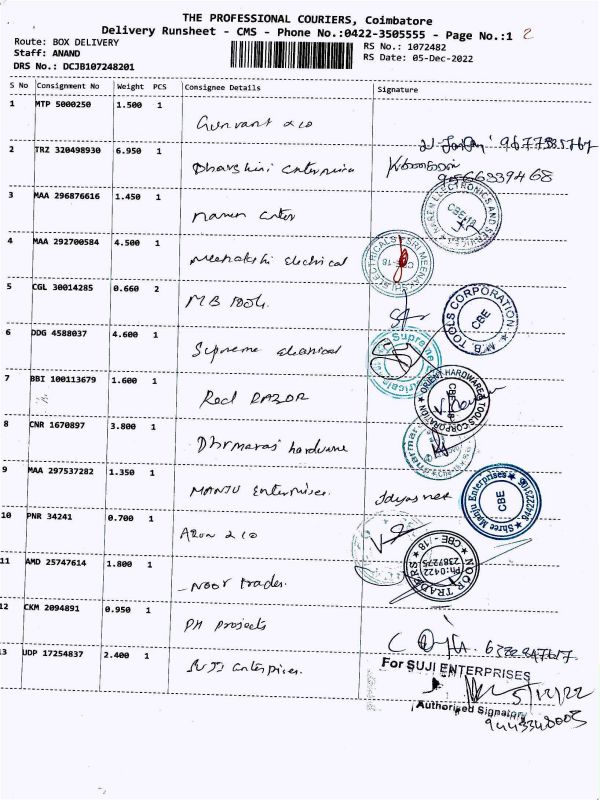 THE PROFESSIONAL COURIERS, Coimbatore
Delivery Runsheet - CMS - Phone No.:0422-3505555 - Page No.:1 2
Route: BOX DELIVERY
Staff: ANAND
DRS No.: DCJB107248201
RS No.: 1072482
RS Date: 05-Dec-2022
S No Consignment No Weight PCS Consignee Details Signature
1 MTP 5000250 1.500 1
Gunvant & co
9677585767
2 TRZ 320498930 6.950 1
Dharshini Enterprise
9566339468
3 MAA 296876616 1.450 1
Naren Enter
NAREN ELECTRONICS AND
CBE-18
4 MAA 292700584 4.500 1
Meenakshi Electrical
CBE-18
5 CGL 30014285 0.660 2
MB Tools.
M.B. TOOLS CORPORATION
CBE
6 DDG 4588037 4.600 1
Supreme electrical
Supreme
7 BBI 100113679 1.600 1
Red RAZOR
ORIENT HARDWARE & TOOLS CORPORATION
8 CNR 1670897 3.800 1
Dhrmaraj hardware
9 MAA 297537282 1.350 1
MANJU Enterprises.
Shree Manju Enterprises
CBE
10 PNR 34241 0.700 1
Arun & co
11 AMD 25747614 1.800 1
Noor trades.
NOOR TRADERS
CBE - 18
Ph:0422
2387275
12 CKM 2094891 0.950 1
PH projects
13 UDP 17254837 2.400 1
SUJI Enterprises.
For SUJI ENTERPRISES
5/12/22
Authorised Signatory
9443348005